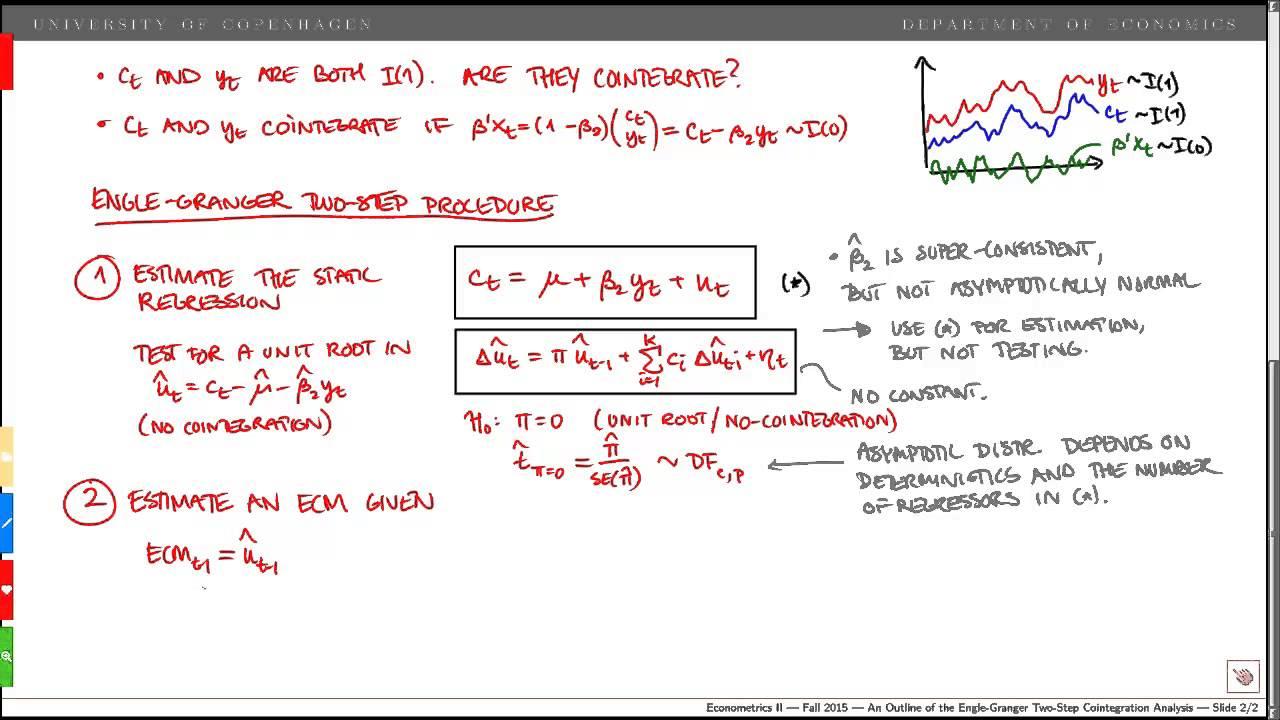 UNIVERSITY OF COPENHAGEN
DEPARTMENT OF ECONOMICS
• Ct AND yt ARE BOTH I(1). ARE THEY COINTEGRATE?
• Ct AND yt COINTEGRATE IF β'Xt = (1 -β2)(Ct yt) = Ct - β2yt ~ I(0)
yt ~ I(1)
Ct ~ I(1)
β'Xt ~ I(0)
ENGLE-GRANGER TWO-STEP PROCEDURE
① ESTIMATE THE STATIC
REGRESSION
Ct = μ + β2yt + ut (*)
• β̂2 IS SUPER-CONSISTENT,
BUT NOT ASYMPTOTICALLY NORMAL
→ USE (*) FOR ESTIMATION,
BUT NOT TESTING.
TEST FOR A UNIT ROOT IN
ût = Ct - μ̂ - β̂2yt
(NO COINTEGRATION)
Δût = π ût-1 + Σ k i=1 ci Δût-i + ηt
NO CONSTANT.
H0: π = 0 (UNIT ROOT / NO-COINTEGRATION)
t̂π=0 = π̂ / SE(π̂) ~ DFc,p
← ASYMPTOTIC DISTR. DEPENDS ON
DETERMINISTICS AND THE NUMBER
OF REGRESSORS IN (*).
② ESTIMATE AN ECM GIVEN
ECMt-1 = ût-1
Econometrics II — Fall 2015 — An Outline of the Engle-Granger Two-Step Cointegration Analysis — Slide 2/2